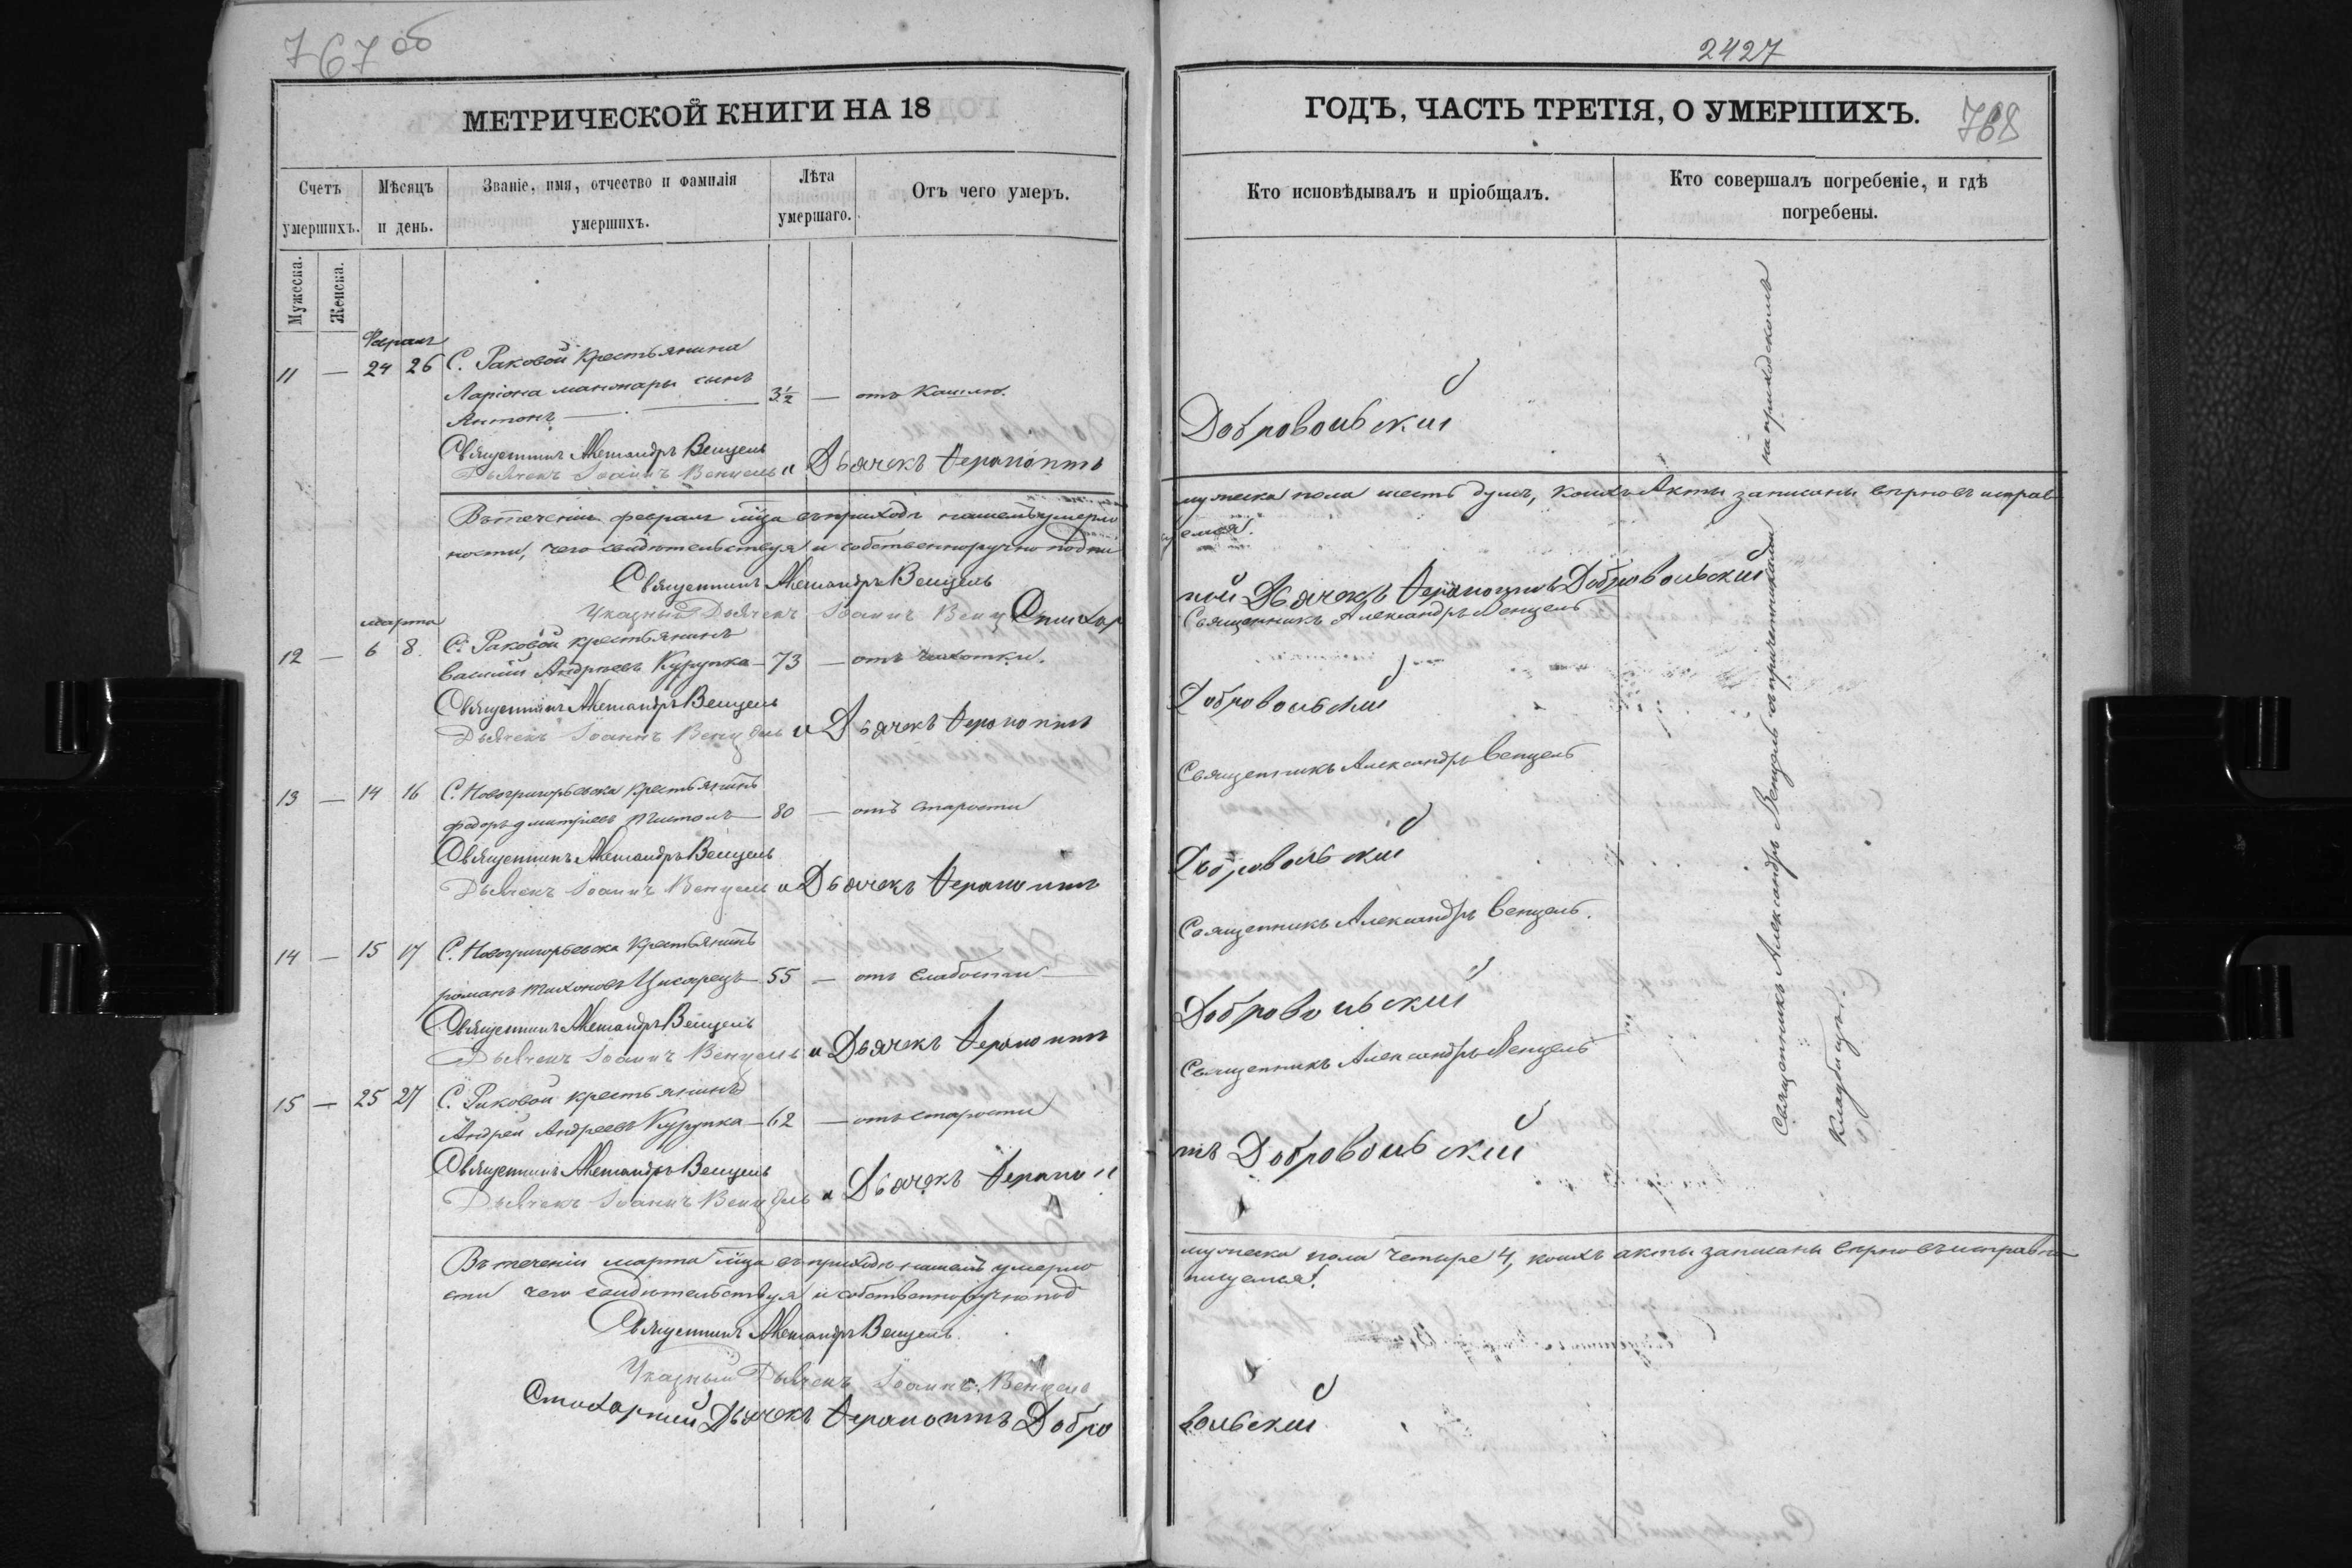 767 об
МЕТРИЧЕСКОЙ КНИГИ НА 18
Счетъ умершихъ.
Мѣсяцъ и день.
Званіе, имя, отчество и фамилія умершихъ.
Лѣта умершаго.
Отъ чего умеръ.
Мужеска.
Женска.
11 — 24 26 С. Раковой крестьянина
Ларіона сынъ
Антонъ — 3½ — отъ кашлю.
Священникъ Александръ Венцель
Дьячекъ Іоаннъ Венцель и Дьячекъ Ѳерапонтъ
Въ теченіи февраля м̃ца въ приходѣ нашемъ умерло
ности, чего свидѣтельствуя и собственноручно подпи
Священникъ Александръ Венцель
Указный Дьячекъ Іоаннъ Венц Стихар
марта
12 — 6 8. С. Раковой крестьянинъ
Василій Андреевъ Курупка — 73 — отъ чахотки.
Священникъ Александръ Венцель
Дьячекъ Іоаннъ Венцель и Дьячекъ Ѳерапонтъ
13 — 14 16 С. Новогригорьевска крестьянинъ
Федоръ Дмитріевъ — 80 — отъ старости
Священникъ Александръ Венцель
Дьячекъ Іоаннъ Венцель и Дьячекъ Ѳерапонтъ
14 — 15 17 С. Новогригорьевска крестьянинъ
Романъ Тихоновъ — 55 — отъ слабости —
Священникъ Александръ Венцель
Дьячекъ Іоаннъ Венцель и Дьячекъ Ѳерапонтъ
15 — 25 27 С. Раковой крестьянинъ
Андрей Андреевъ Курупка — 62 — отъ старости
Священникъ Александръ Венцель
Дьячекъ Іоаннъ Венцель и Дьячекъ Ѳерапон
Въ теченіи марта м̃ца въ приходѣ нашемъ умерло
сти чего свидѣтельствуя и собственноручно под
Священникъ Александръ Венцель.
Указный Дьячекъ Іоаннъ Венцель
Стихарный Дьячекъ Ѳерапонтъ Добро
2427
ГОДЪ, ЧАСТЬ ТРЕТІЯ, О УМЕРШИХЪ.
768
Кто исповѣдывалъ и пріобщалъ.
Кто совершалъ погребеніе, и гдѣ погребены.
Добровольскій
мужеска пола шесть душъ, коихъ Акты записаны вѣрно въ исправ
Дьячекъ Ѳерапонтъ Добровольскій
Священникъ Александръ Венцель
Добровольскій
Священникъ Александръ Венцель
Добровольскій
Священникъ Александръ Венцель.
Добровольскій
Священникъ Александръ Венцель
тъ Добровольскій
мужеска пола четыре 4, коихъ акты записаны вѣрно въ исправно
вольскій
Священникъ Александръ Венцель съ причетниками на приходскомъ
кладбищѣ.